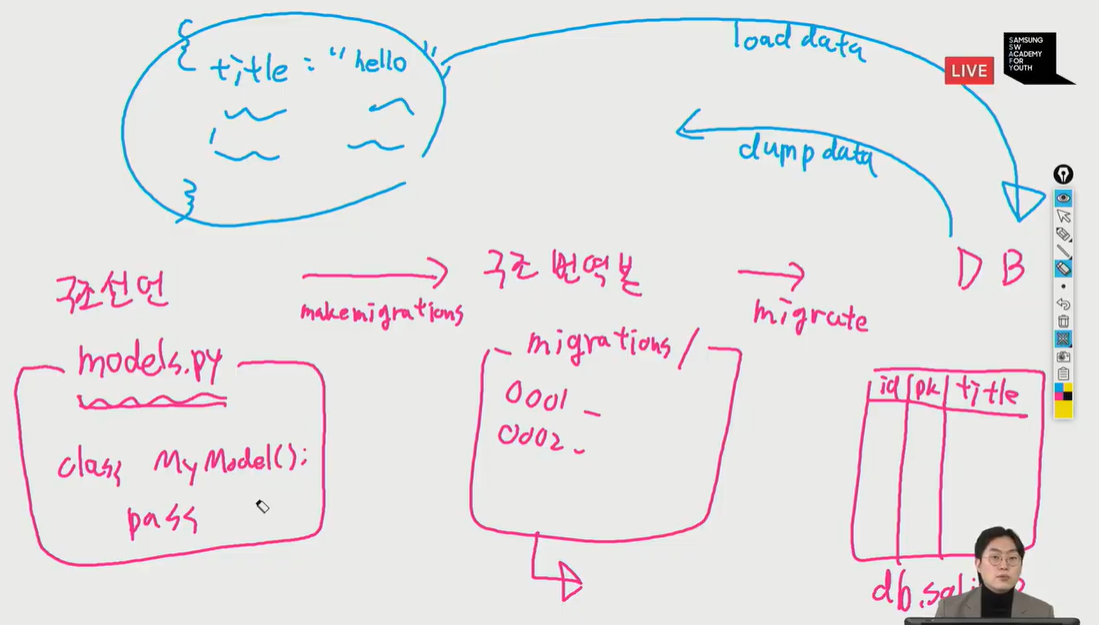 {
title : "hello",
}
load data
dump data
LIVE
SAMSUNG
SW
ACADEMY
FOR
YOUTH
구조선언
makemigrations
구조 번역본
migrate
DB
models.py
class MyModel():
pass
migrations/
0001_
0002_
id pk title